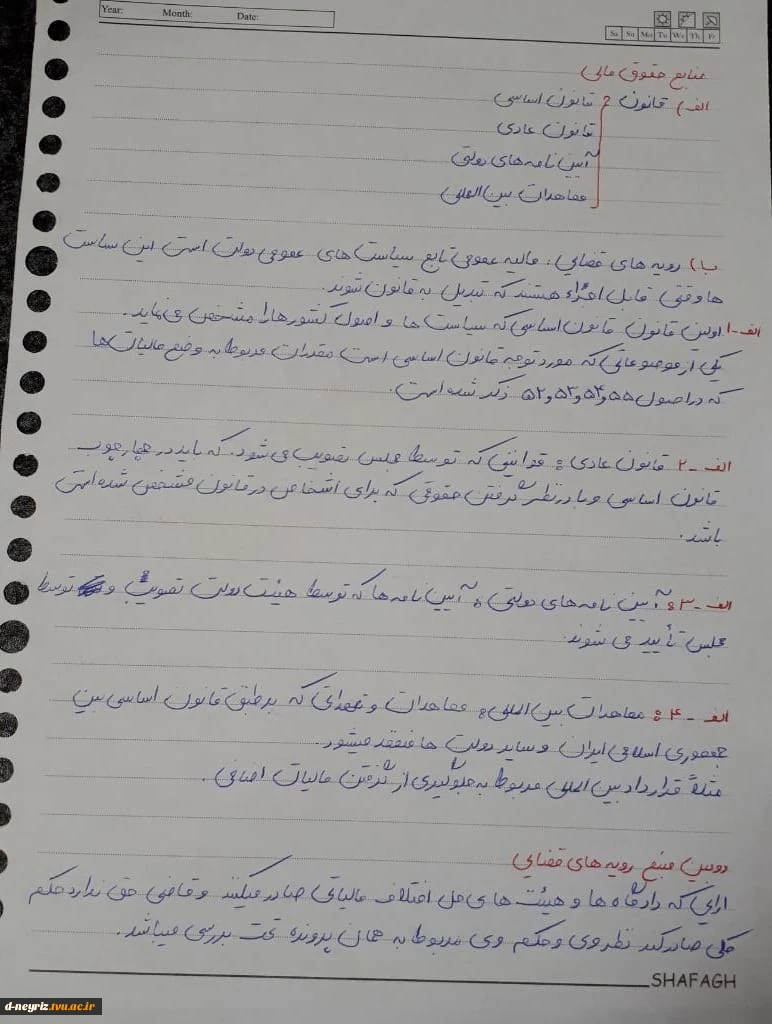 Year: Month: Date:
Sa Su Mo Tu We Th Fr
منابع حقوق مالی
الف) قانون : قانون اساسی
قانون عادی
آیین نامه های دولتی
معاهدات بین المللی
ب) رویه های قضایی : مالیه عمومی تابع سیاست های عمومی دولت است این سیاست
ها وقتی قابل اجراء هستند که تبدیل به قانون شوند.
الف-۱ اولین قانون قانون اساسی که سیاست ها و اصول کشورها را مشخص می نماید.
یکی از موضوعاتی که مورد توجه قانون اساسی است مقدرات مربوط به وضع مالیات ها
که در اصول ۵۵ و ۵۴ و ۵۳ و ۵۲ ذکر شده است.
الف-۲ قانون عادی : قوانینی که توسط مجلس تصویب می شود. که باید در چهارچوب
قانون اساسی و با در نظر گرفتن حقوقی که برای اشخاص در قانون مشخص شده است
باشد.
الف-۳ : آیین نامه های دولتی : آیین نامه ها که توسط هیئت دولت تصویب و توسط
مجلس تأیید می شوند.
الف-۴ : معاهدات بین المللی : معاهدات و تعهداتی که بر طبق قانون اساسی بین
جمهوری اسلامی ایران و سایر دولت ها منعقد میشود.
مثلاً قرارداد بین المللی مربوط به جلوگیری از گرفتن مالیات اضافی.
دومین منبع رویه های قضایی
ارایی که دادگاه ها و هیئت های حل اختلاف مالیاتی صادر میکنند و قاضی حق ندارد حکم
کلی صادر کند نظر وی و حکم وی مربوط به همان پرونده تحت بررسی میباشد.
SHAFAGH
d-neyriz.tvu.ac.ir